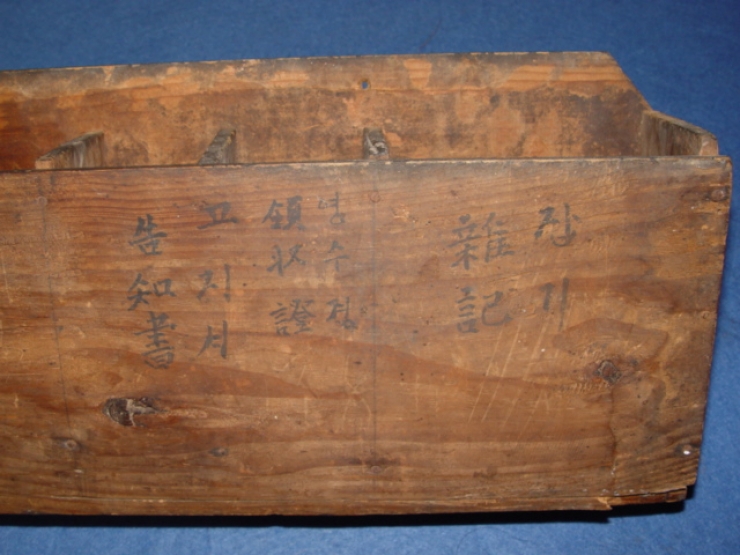 잡기
雜記
영수징
領收證
고지서
告知書